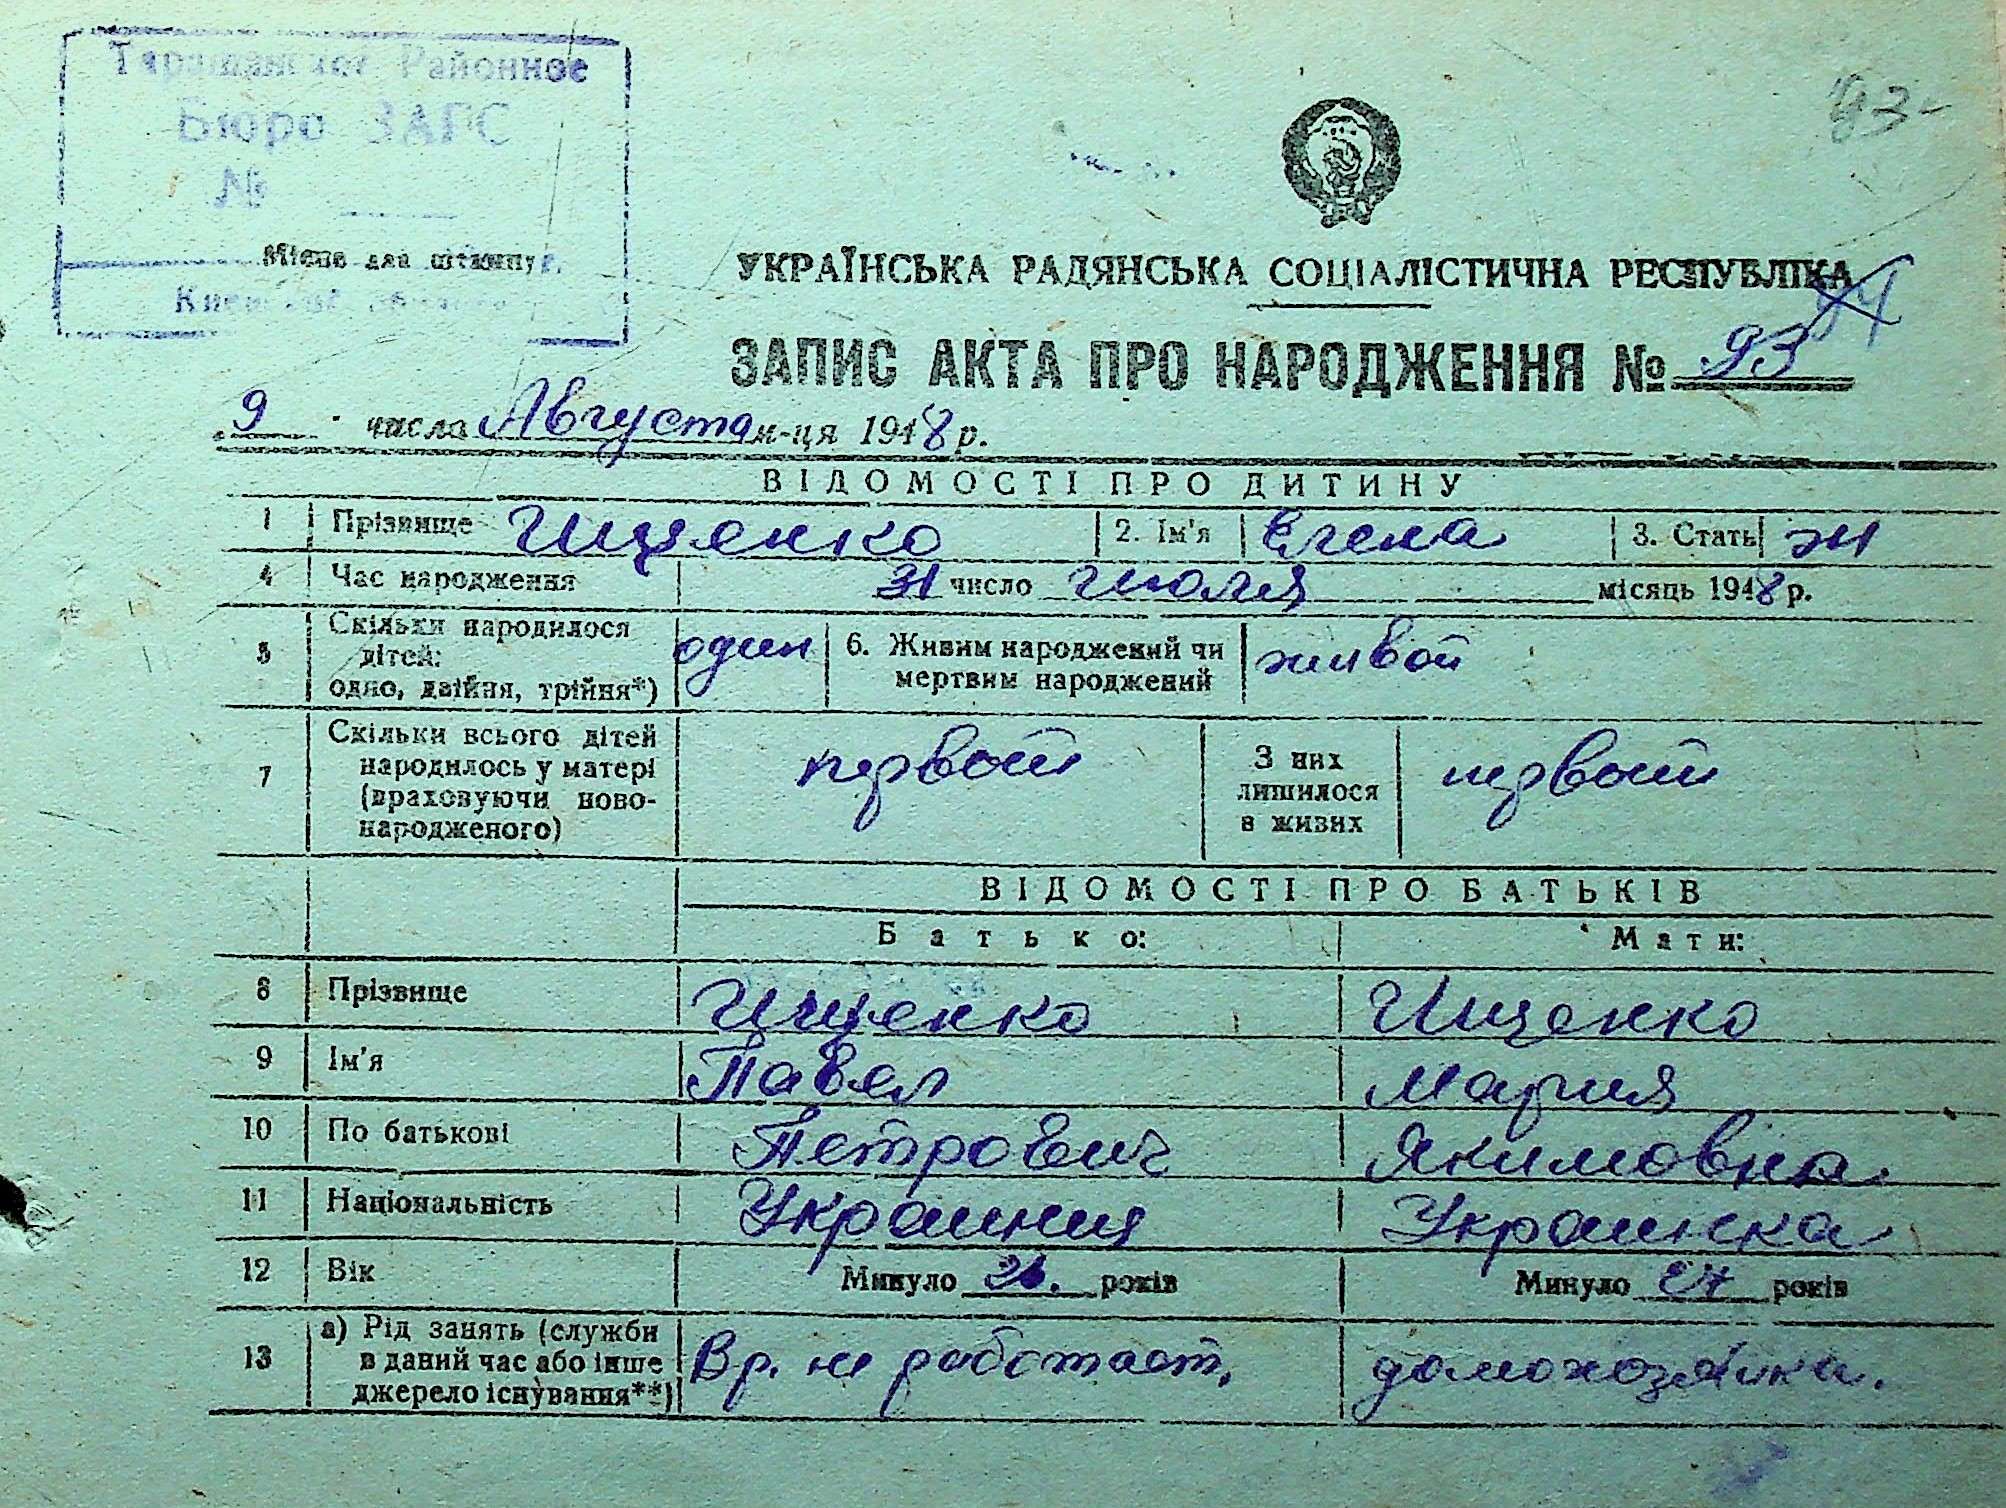 Таращанское Районное
Бюро ЗАГС
№
Місце для штампу
93
УКРАЇНСЬКА РАДЯНСЬКА СОЦІАЛІСТИЧНА РЕСПУБЛІКА
ЗАПИС АКТА ПРО НАРОДЖЕННЯ № 93
9 числа Августа м-ця 1948 р.
ВІДОМОСТІ ПРО ДИТИНУ
1 Прізвище Ищенко 2. Ім'я Елена 3. Стать ж
4 Час народження 31 число Июля місяць 1948 р.
5 Скільки народилося дітей: одно, двійня, трійня*) один 6. Живим народжений чи мертвим народжений живой
7 Скільки всього дітей народилось у матері (враховуючи ново-народженого) первой З них лишилося в живих первой
ВІДОМОСТІ ПРО БАТЬКІВ
Батько: Мати:
8 Прізвище Ищенко Ищенко
9 Ім'я Павел Мария
10 По батькові Петрович Якимовна
11 Національність Украинец Украинка
12 Вік Минуло 26. років Минуло 27 років
13 а) Рід занять (служби в даний час або інше джерело існування**) Вр. не работает. домохозяйка.